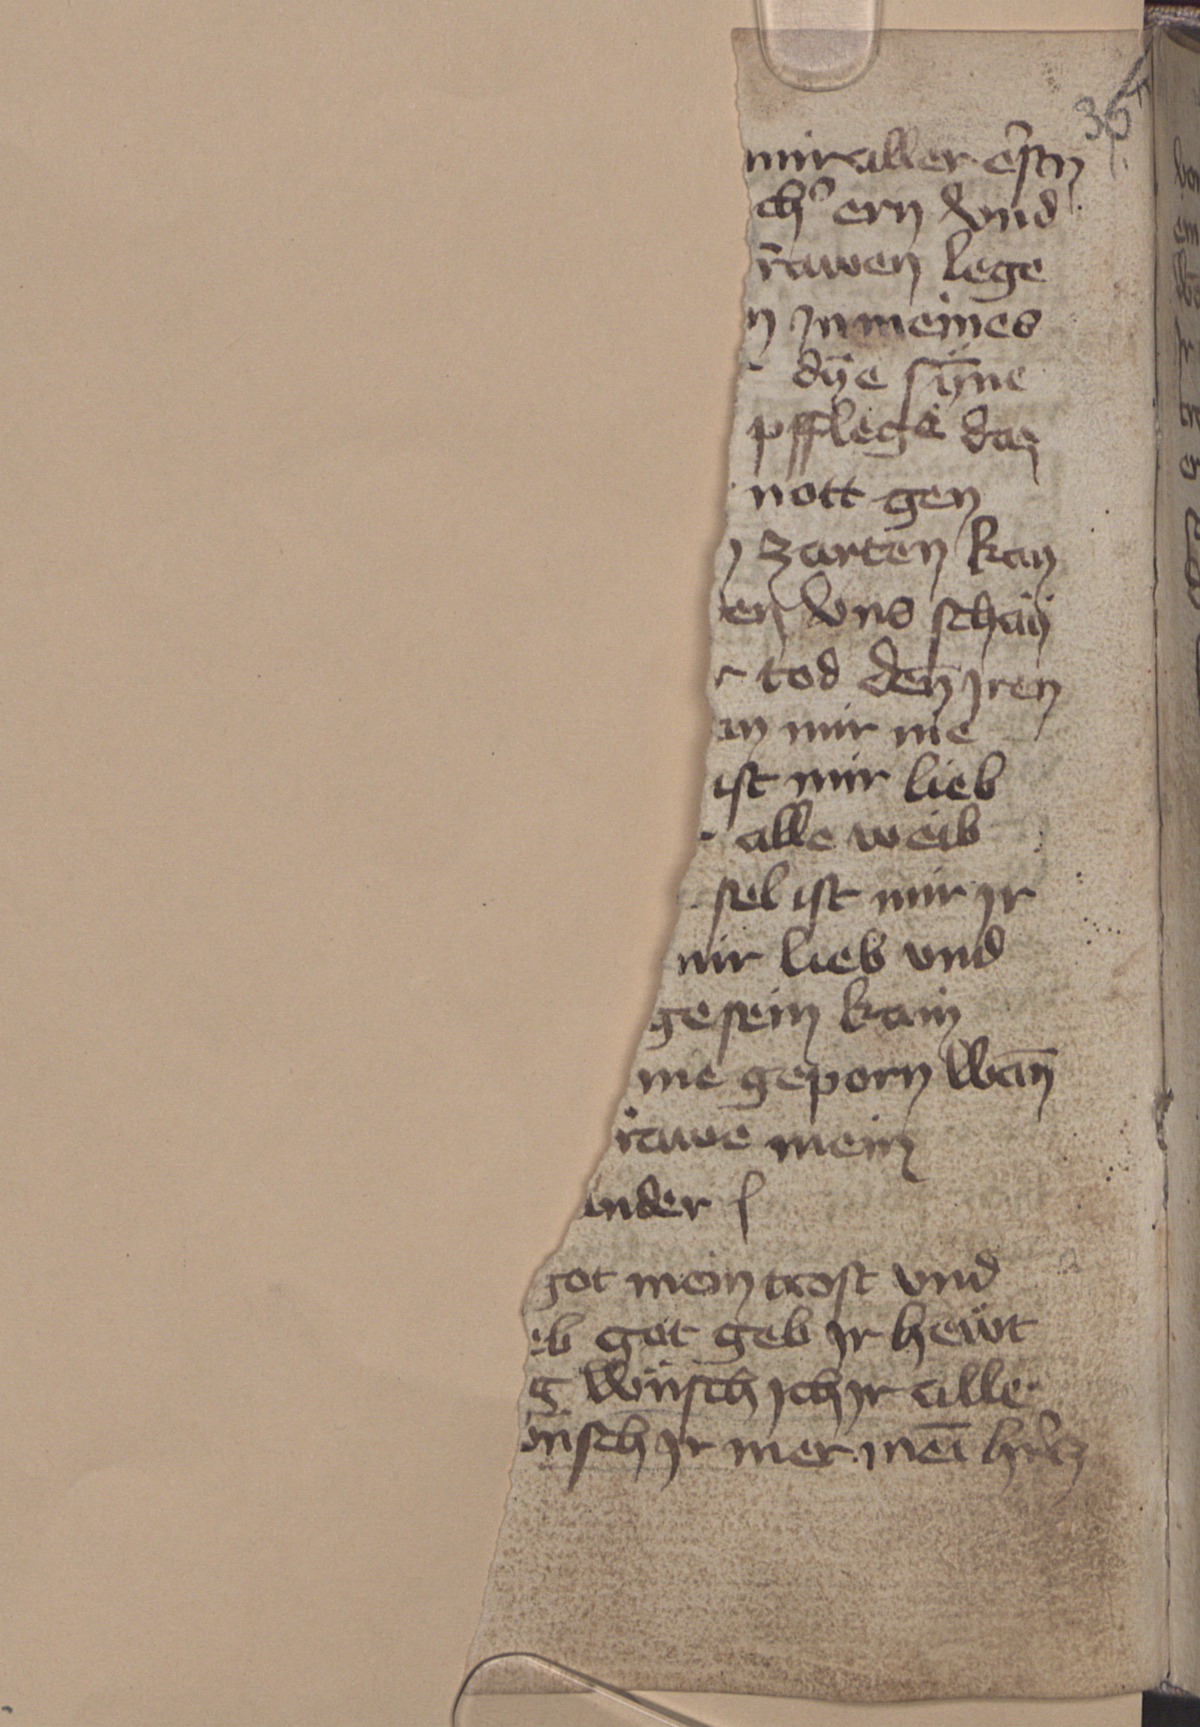 36v
mir aller eʼstn
chʼ ern vnd
rawen lege
n In meines
dÿe sÿne
pfflege dan
nott gen
n zarten kan
en vns schaÿ
r tod den Iren
an mir nie
ist mir lieb
alle weib
sel ist mir Ir
mir lieb vnd
gesein kain
nie geporn Wan̄
rawe mein
ander
got mein trost vnd
eb got geb Ir hewt
g Wünsch Ich Ir alle
ünsch Ir mer mei̅ hʼtz